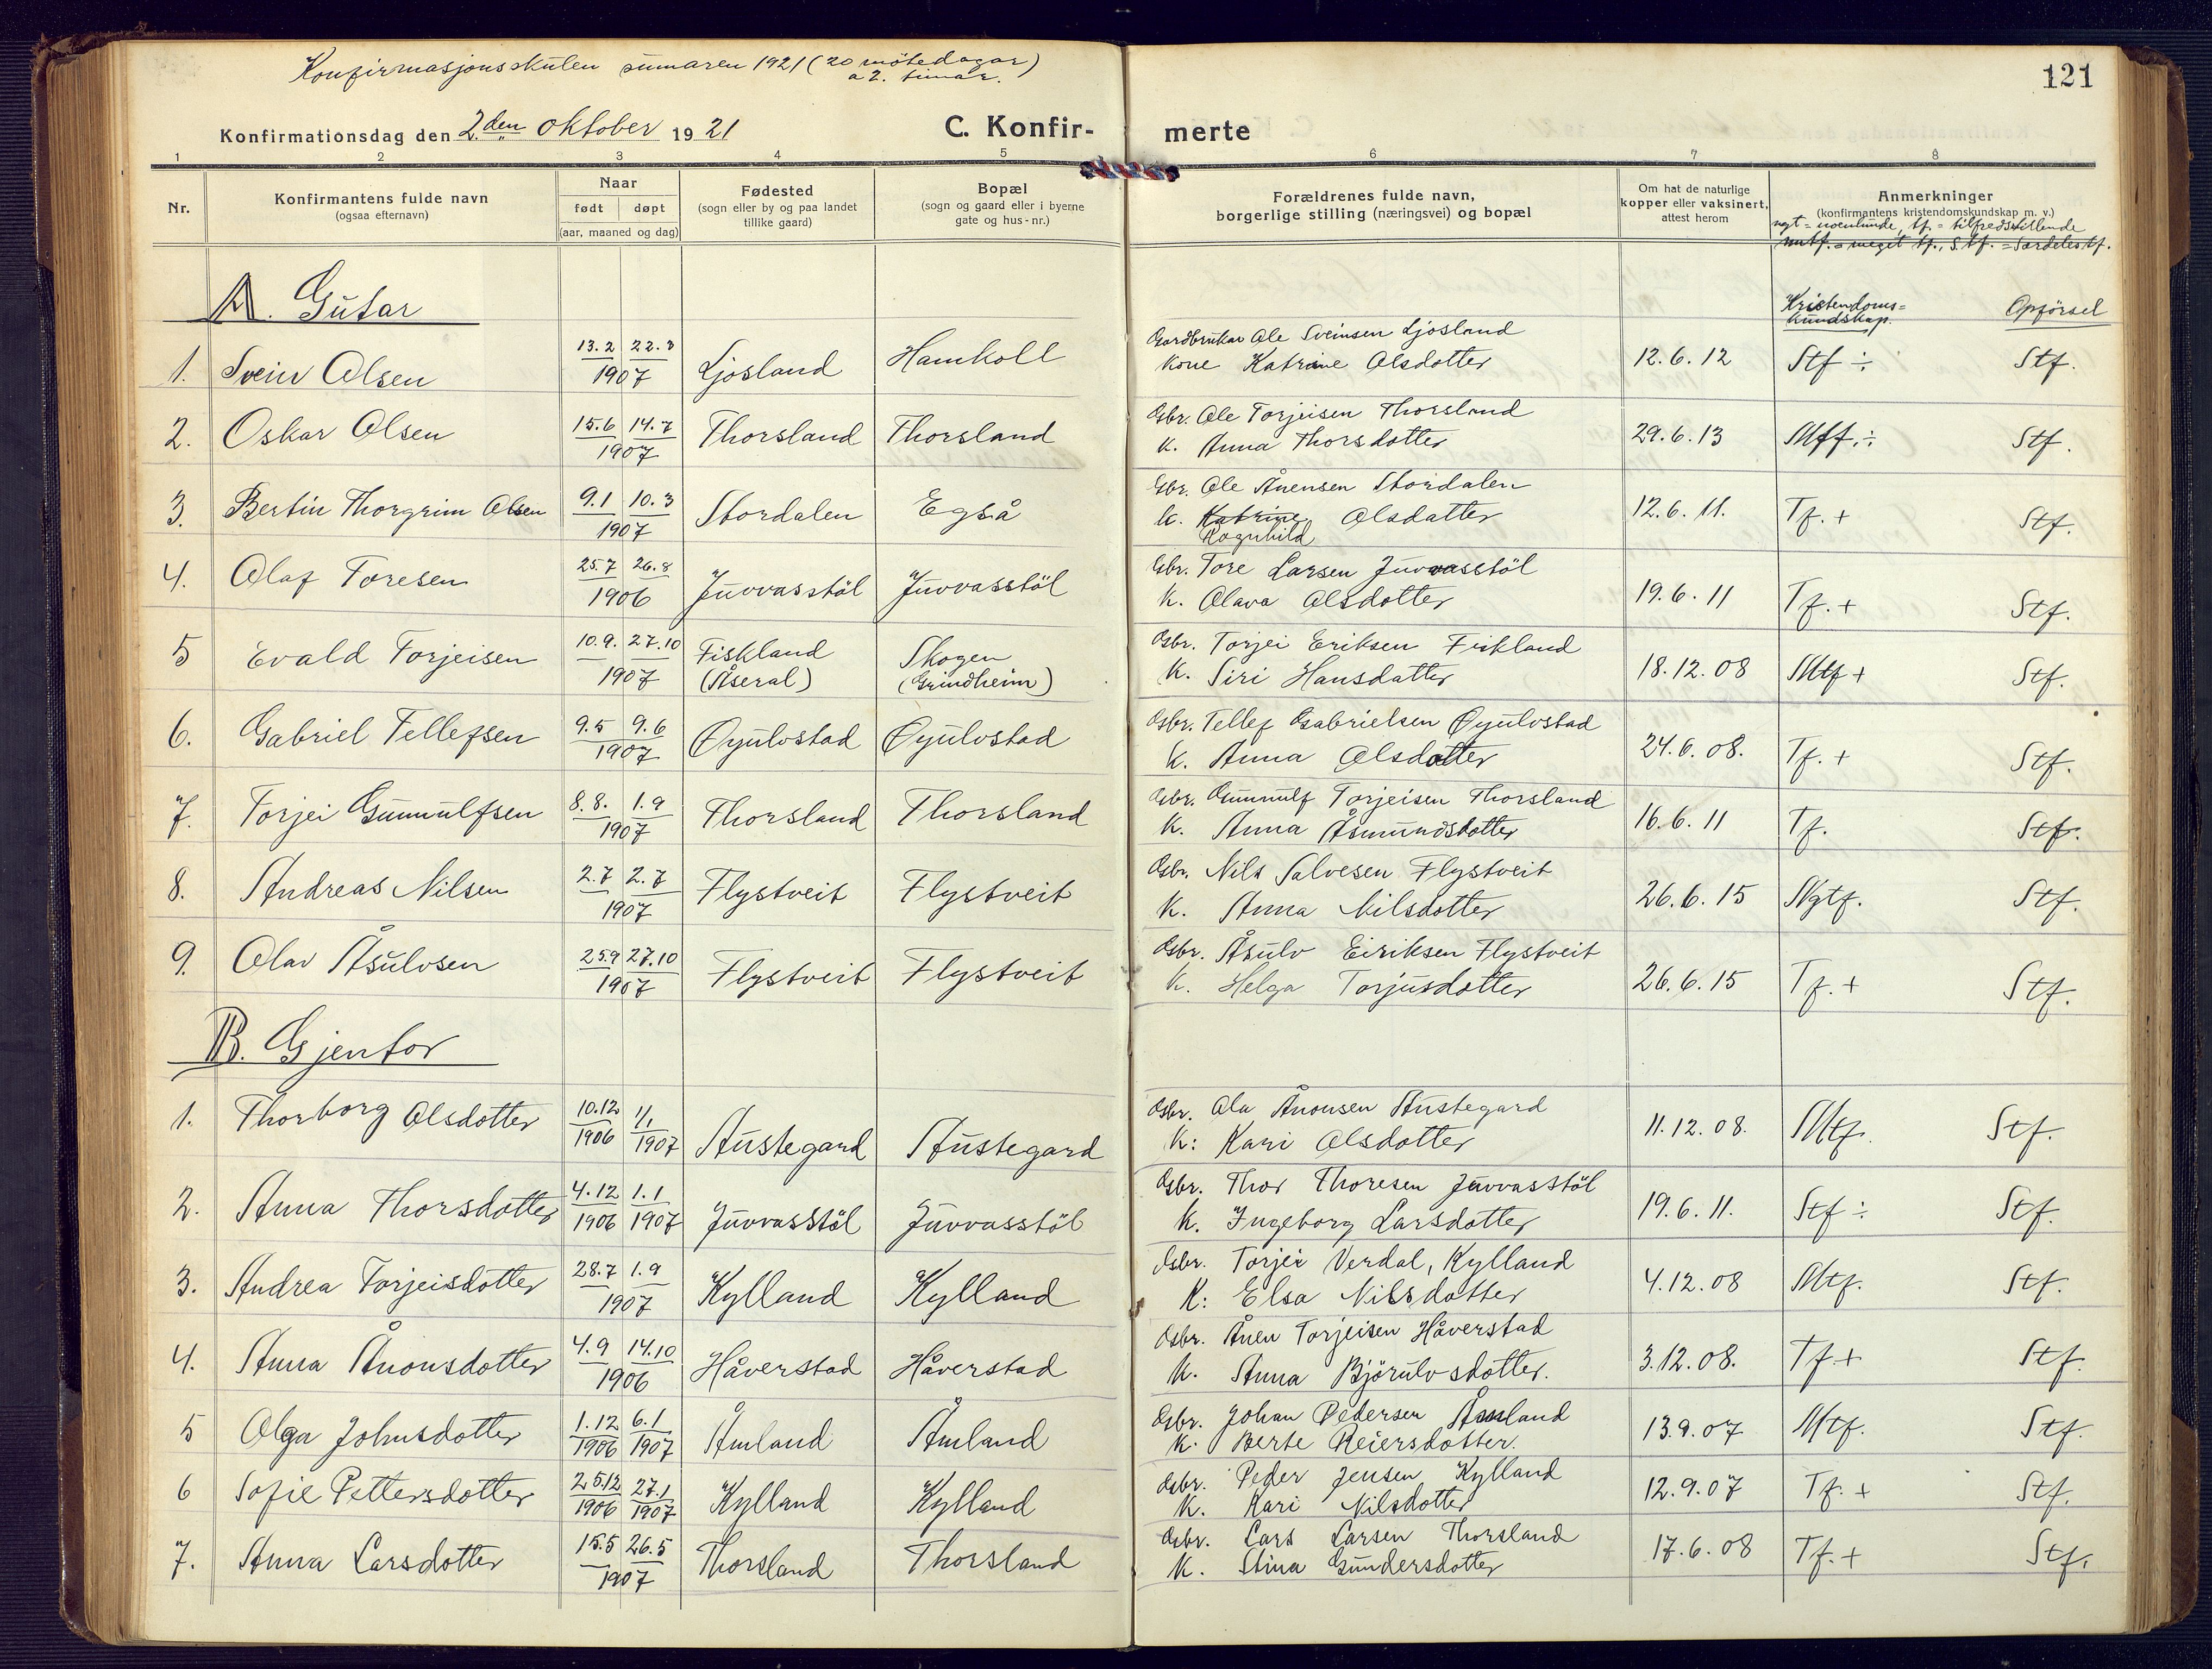 Konfirmasjonsskulen sumaren 1921 (20 møtedagar)
a 2. timar.
121
Konfirmationsdag den 2.den Oktober 1921
C. Konfirmerte
1 2 3 4 5 6 7 8
Nr.
Konfirmantens fulde navn
(ogsaa efternavn)
Naar
født døpt
(aar, maaned og dag)
Fødested
(sogn eller by og paa landet
tillike gaard)
Bopæl
(sogn og gaard eller i byerne
gate og hus-nr.)
Forældrenes fulde navn,
borgerlige stilling (næringsvei) og bopæl
Om hat de naturlige
kopper eller vaksinert,
attest herom
Anmerkninger
(konfirmantens kristendomskundskap m. v.)
ngt = noenlunde, tf. = tilfredsstillende
mtf. = meget tf., S.tf. = Særdeles tf.
A. Gutar
Kristendoms=
kundskap. Opførsel
1. Svein Olsen 13.2 22.3 1907 Ljosland Hamkoll Gardbrukar Ole Sveinsen Ljosland
Kone Katrine Olsdotter 12.6.12 Stf ÷ Stf.
2. Oskar Olsen 15.6 14.7 1907 Thorsland Thorsland Gbr. Ole Torjeisen Thorsland
K. Anna Thorsdotter 29.6.13 Mtf.÷ Stf.
3. Bertin Thorgrim Olsen 9.1 10.3 1907 Stordalen Egså Gbr. Ole Ånensen Stordalen
K. Katrine Olsdatter 12.6.11. Tf. + Stf.
Ragnhild
4. Olaf Toresen 25.7 26.8 1906 Juvvasstöl Juvvasstöl Gbr. Tore Larsen Juvvasstöl
K. Olava Olsdotter 19.6.11 Tf. + Stf.
5 Evald Torjeisen 10.9. 27.10 1907 Fiskland (Åseral) Skogen (Grindheim) Gbr. Torjei Eriksen Fiskland
K. Siri Hansdatter 18.12.08 Mtf + Stf.
6. Gabriel Tellefsen 9.5 9.6 1907 Øyulvstad Øyulvstad Gbr. Tellef Gabrielsen Øyulvstad
K. Anna Olsdotter 24.6.08. Tf. + Stf.
7. Torjei Gunnulfsen 8.8. 1.9 1907 Thorsland Thorsland Gbr. Gunnulf Torjeisen Thorsland
K. Anna Åsmundsdotter 16.6.11 Tf. Stf.
8. Andreas Nilsen 2.7 2.7 1907 Flystveit Flystveit Gbr. Nils Salvesen Flystveit
K. Anna Nilsdotter 26.6.15 Ngtf. Stf.
9. Olav Åsulvsen 25.9 27.10 1907 Flystveit Flystveit Gbr. Åsulv Eiriksen Flystveit
K. Helga Torjusdotter 26.6.15 Tf. + Stf.
B. Gjentor
1. Thorborg Olsdotter 10.12 1906 1/1 1907 Austegard Austegard Gbr. Ola Ånonsen Austegard
K: Kari Olsdotter 11.12.08. Mtf. Stf.
2. Anna Thorsdotter 4.12 1906 1.1 1907 Juvvasstöl Juvvasstöl Gbr. Thor Thoresen Juvvasstöl
K. Ingeborg Larsdotter 19.6.11. Stf ÷ Stf.
3. Andrea Torjeisdotter 28.7 1.9 1907 Kylland Kylland Gbr. Torjei Verdal, Kylland
K: Elsa Nilsdotter 4.12.08 Mtf. Stf.
4. Anna Ånonsdotter 4.9 14.10 1906 Håverstad Håverstad Gbr. Ånen Torjeisen Håverstad
K. Anna Bjørulvsdotter. 3.12.08. Tf + Stf.
5 Olga Johnsdotter 1.12 1906 6.1 1907 Åmland Åmland Gbr. Johan Pedersen Åmland
K. Berte Reiersdotter. 13.9.07 Mtf. Stf.
6 Sofie Pettersdotter 25.12 1906 27.1 1907 Kylland Kylland Gbr. Peder Jensen Kylland
K. Kari Nilsdotter 12.9.07 Tf. + Stf.
7. Anna Larsdotter 15.5 26.5 1907 Thorsland Thorsland Gbr. Lars Larsen Thorsland
K. Stina Gundersdotter 17.6.08 Tf. + Stf.